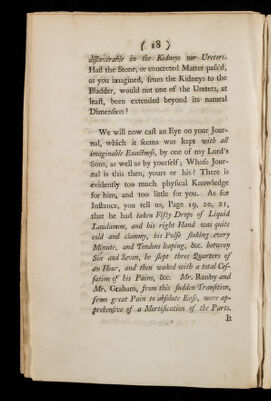 ( 18 )
discoverable in the Kidneys nor Ureters.
Had the Stone, or concreted Matter pass'd,
as you imagined, from the Kidneys to the
Bladder, would not one of the Ureters, at
least, been extended beyond its natural
Dimension?
We will now cast an Eye on your Jour-
nal, which it seems was kept with all
imaginable Exactness, by one of my Lord's
Sons, as well as by yourself; Whose Jour-
nal is this then, yours or his? There is
evidently too much physical Knowledge
for him, and too little for you. As for
Instance, you tell us, Page 19, 20, 21,
that he had taken Fifty Drops of Liquid
Laudanum, and his right Hand was quite
cold and clammy, his Pulse sinking every
Minute, and Tendons leaping, &c. between
Six and Seven, he slept three Quarters of
an Hour, and then waked with a total Ces-
sation of his Pains, &c. Mr. Ranby and
Mr. Graham, from this sudden Transition,
from great Pain to absolute Ease, were ap-
prehensive of a Mortification of the Parts.
It